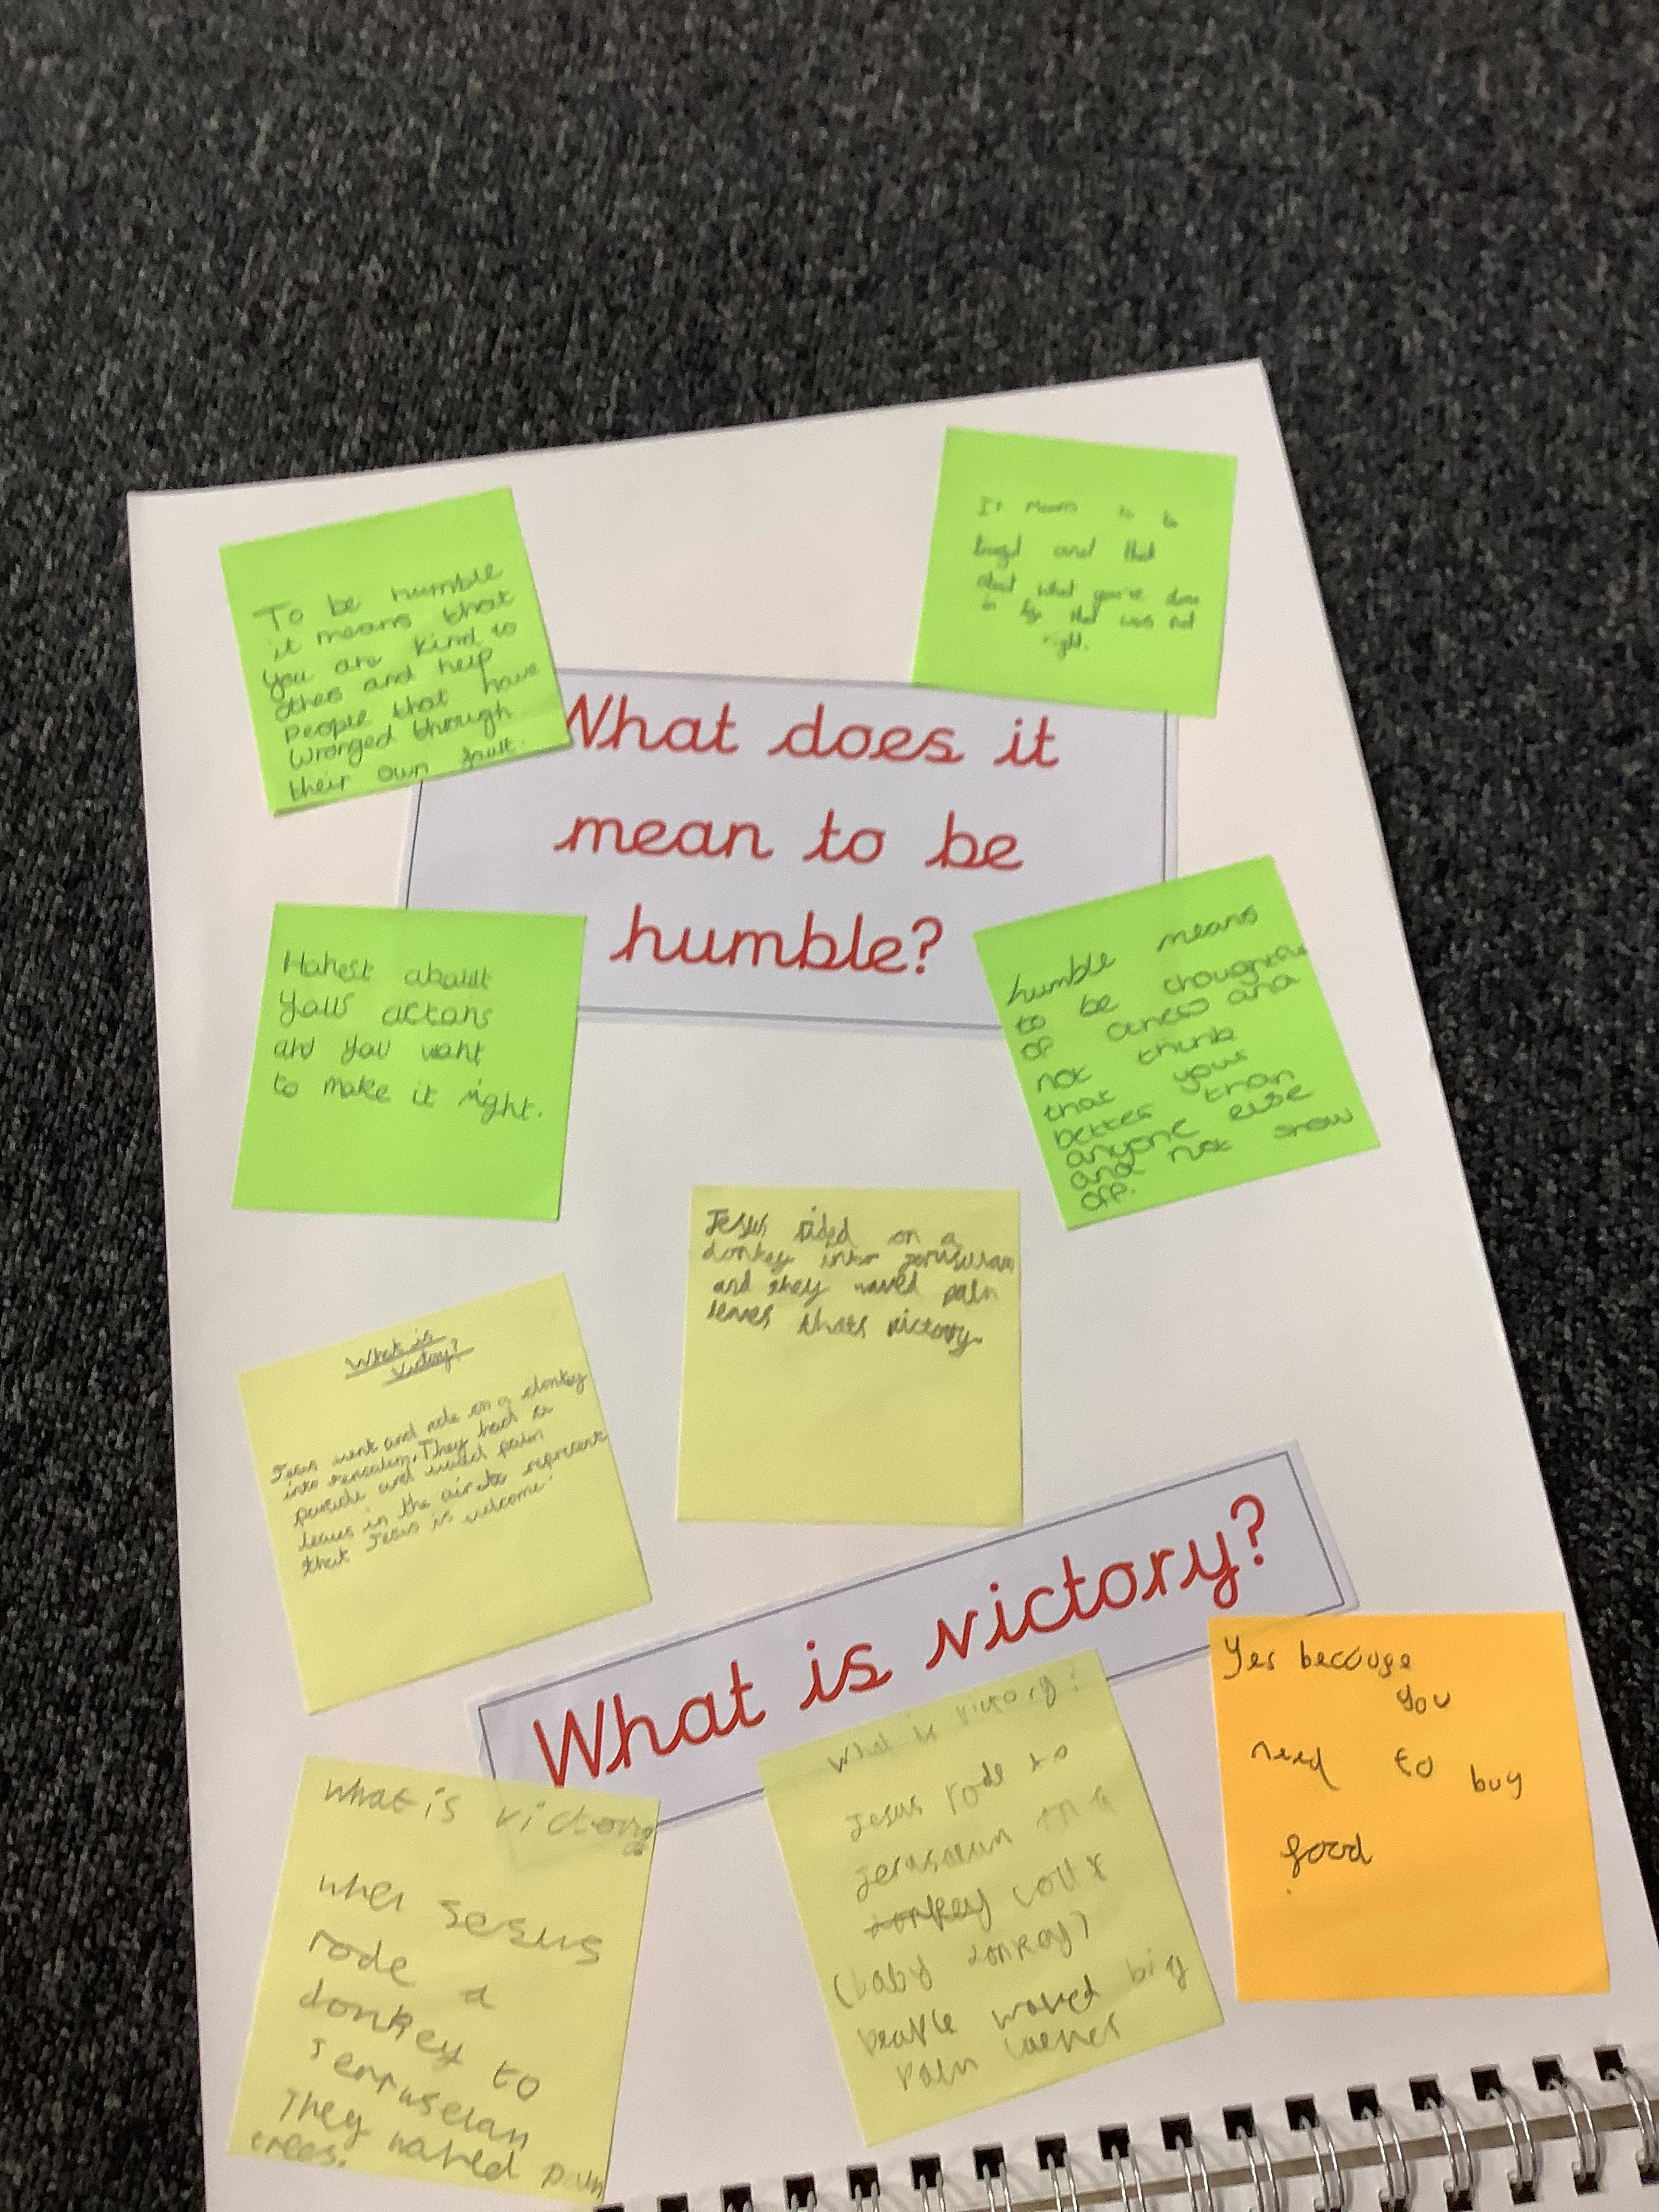 To be humble
it means that
you are kind to
others and help
people that have
wronged through
their own fault.
It means to be
and that
about what you've done
in life that was not
right.
What does it
mean to be
humble?
Honest about
your actions
and you want
to make it right.
humble means
to be thoughtful
of others and
not think
that your
better than
anyone else
and not show
off.
Jesus rided on a
donkey into
and they waved palm
leaves thats victory.
What is
Victory?
Jesus went and rode on a donkey
into They had a
parade and waved palm
leaves in the air to represent
that Jesus is welcome.
What is victory?
What is victory
when Jesus
rode a
donkey to
They waved palm
trees.
What is victory?
Jesus rode to
on a
donkey
(baby donkey)
waved big
Yes because
you
need to buy
food